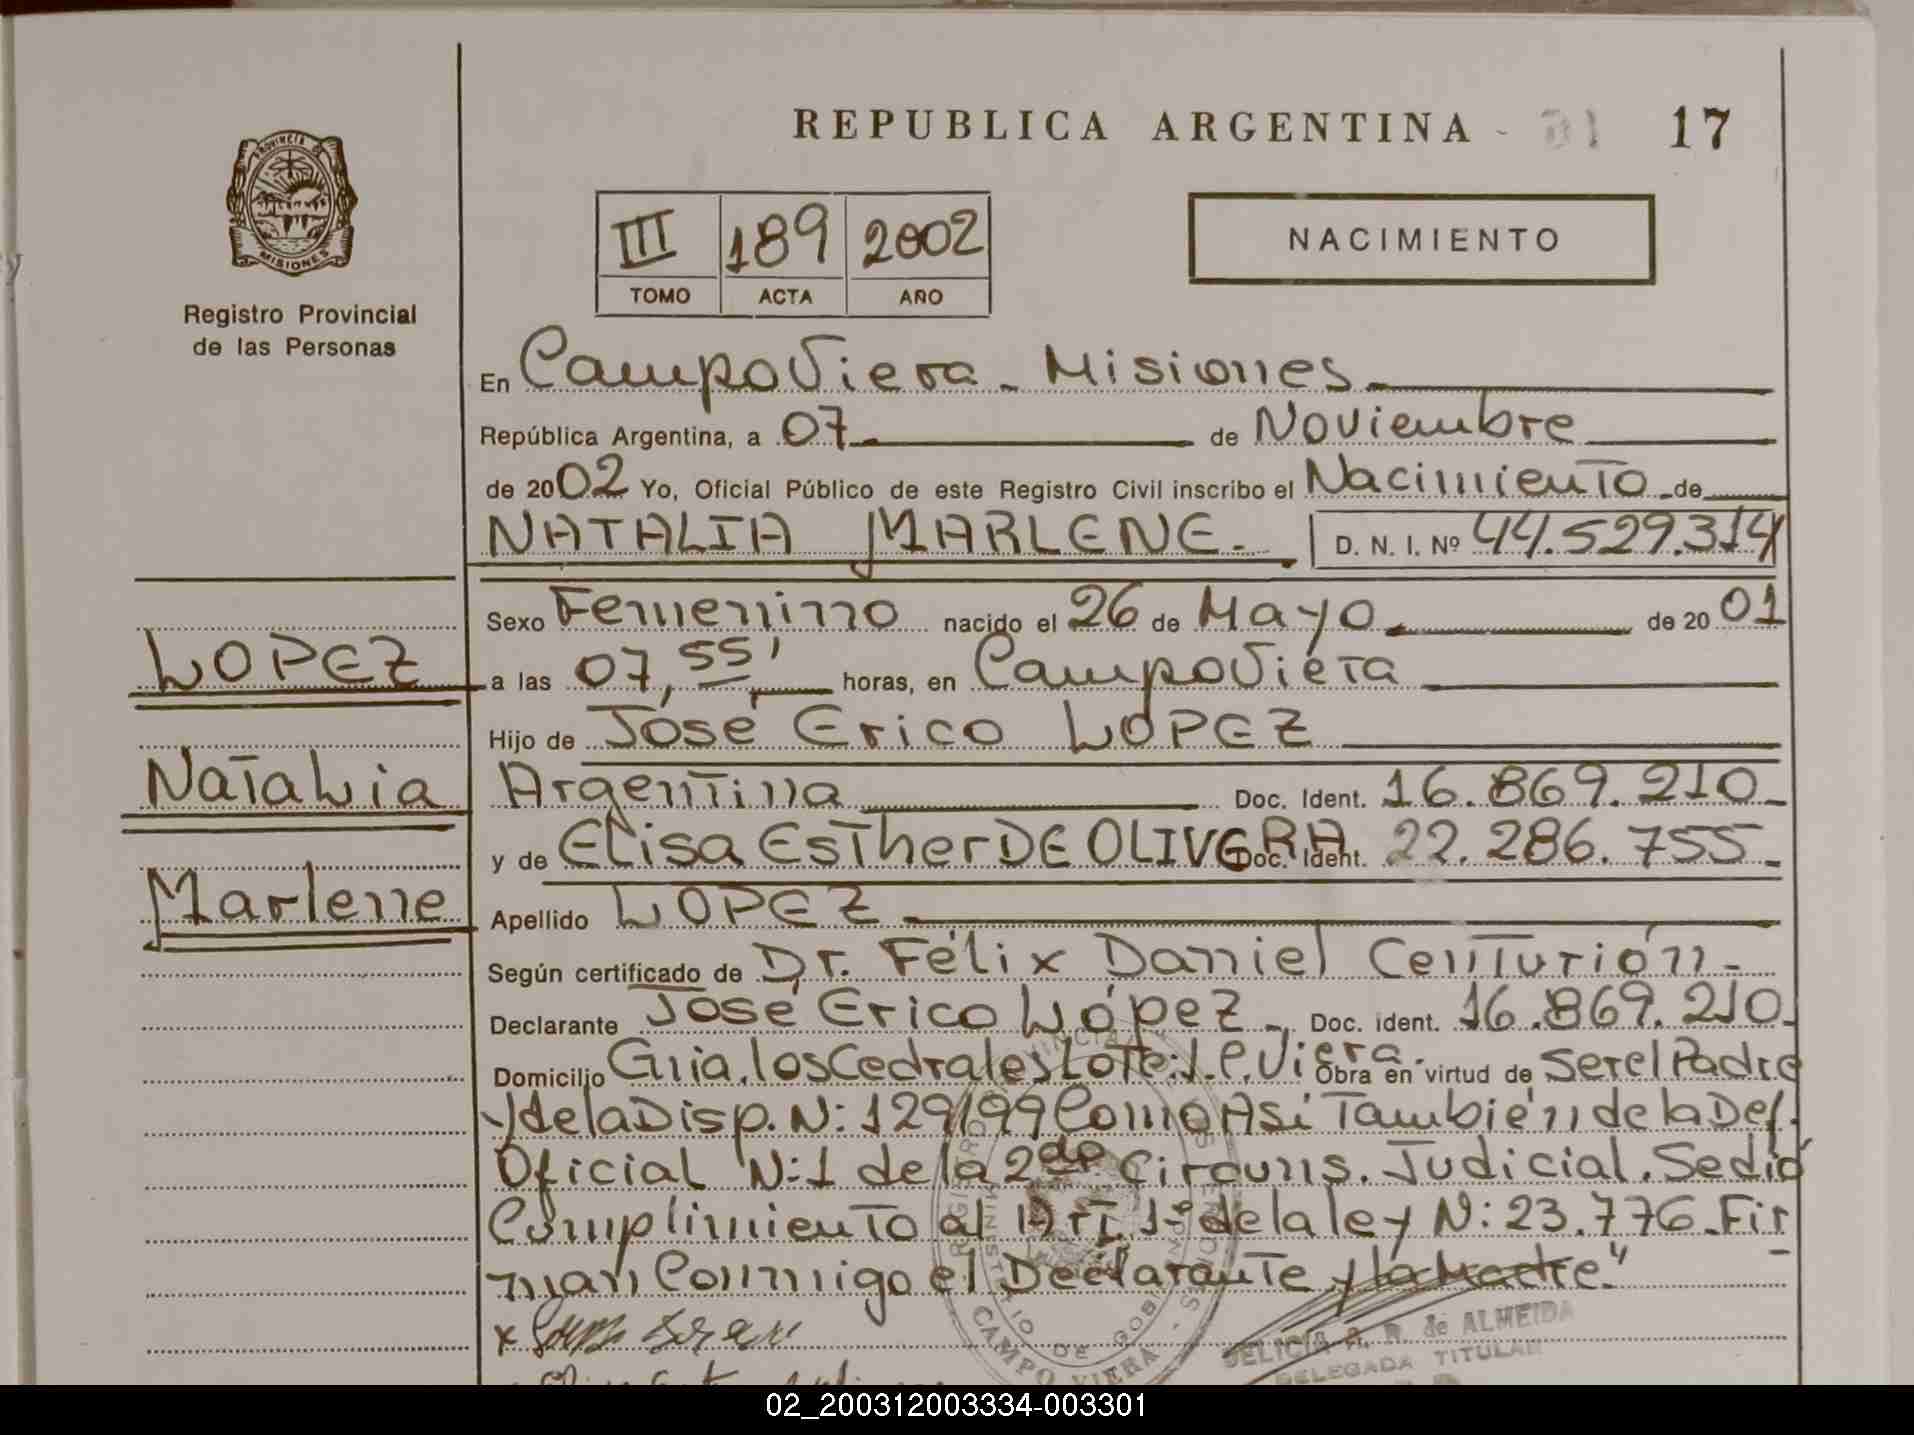 REPUBLICA ARGENTINA 01 17
PROVINCIA DE
MISIONES
Registro Provincial
de las Personas
III 189 2002
TOMO ACTA AÑO
NACIMIENTO
En Campo Viera - Misiones
República Argentina, a 07 de Noviembre
de 2002 Yo, Oficial Público de este Registro Civil inscribo el Nacimiento de
NATALIA MARLENE. D. N. I. Nº 44.529.314
Sexo Femenino nacido el 26 de Mayo de 20 01
a las 07,55' horas, en Campo Viera
Hijo de José Erico LOPEZ
Argentina Doc. Ident. 16.869.210
y de Elisa Esther DE OLIVERA Doc. Ident. 22.286.755
Apellido LOPEZ
Según certificado de Dr. Félix Daniel Centurión
Declarante José Erico López Doc. ident. 16.869.210
Domicilio Gría. los Cedrales Lote: 1. C. Viera. Obra en virtud de Ser el Padre
y de la Disp. N: 129/99 Como Así También de la Def.
Oficial N:1 de la 2da Circuns. Judicial. Se dió
Cumplimiento al Art. 1º de la ley N: 23.776. Fir
man Conmigo el Declarante y la Madre."
LOPEZ
Natalia
Marlene
REGISTRO PROVINCIAL
MINISTERIO DE GOBIERNO
CAMPO VIERA
DELICIA A. R. de ALMEIDA
DELEGADA TITULAR
02_200312003334-003301